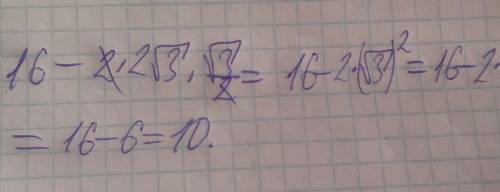 16 - 2 · 2√3 · √3/2 = 16 - 2 · (√3)² = 16 - 2 ·
= 16 - 6 = 10.